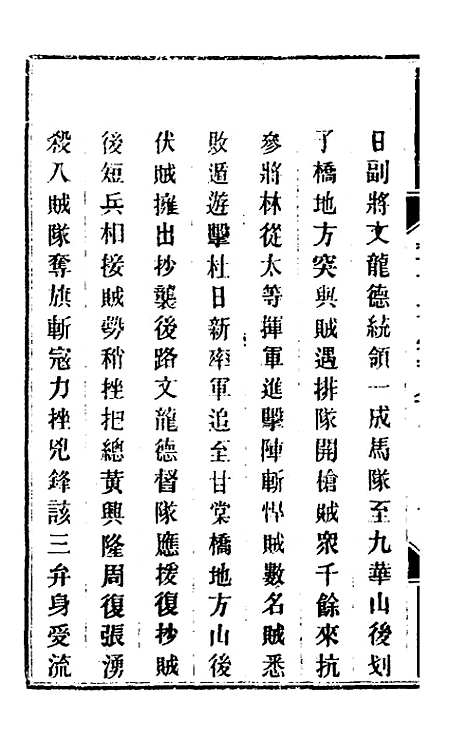 日副將文龍德統領一成馬隊至九華山後划
了橋地方突與賊遇排隊開槍賊衆千餘來抗
參將林從太等揮軍進擊陣斬悍賊數名賊悉
敗遁遊擊杜日新率軍追至甘棠橋地方山後
伏賊擁出抄襲後路文龍德督隊應援復抄賊
後短兵相接賊勢稍挫把總黃興隆周復張湧
殺入賊隊奪旗斬寇力挫兇鋒該三弁身受流